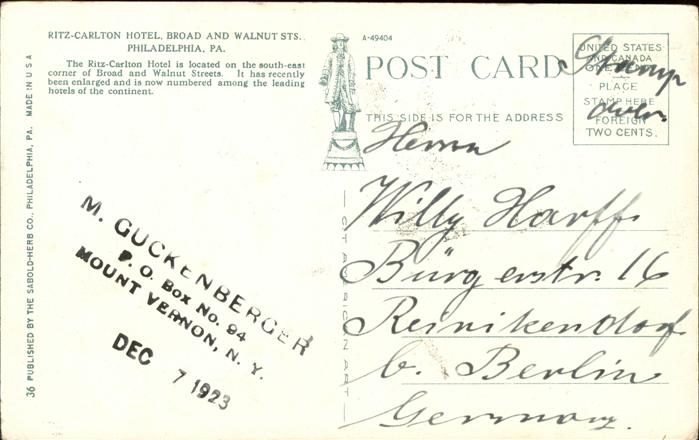 RITZ-CARLTON HOTEL, BROAD AND WALNUT STS.
PHILADELPHIA, PA.
The Ritz-Carlton Hotel is located on the south-east
corner of Broad and Walnut Streets. It has recently
been enlarged and is now numbered among the leading
hotels of the continent.
36 PUBLISHED BY THE SABOLD-HERB CO., PHILADELPHIA, PA. MADE IN U S A
A-49404
POST CARD
THIS SIDE IS FOR THE ADDRESS
UNITED STATES
AND CANADA
ONE CENT
PLACE
STAMP HERE
FOREIGN
TWO CENTS.
Stamp
Herrn
Willy Harff
Bürgerstr. 16
Reinikendorf
b. Berlin
Germany.
M. GUCKENBERGER
P. O. BOX NO. 94
MOUNT VERNON, N. Y.
DEC 7 1923